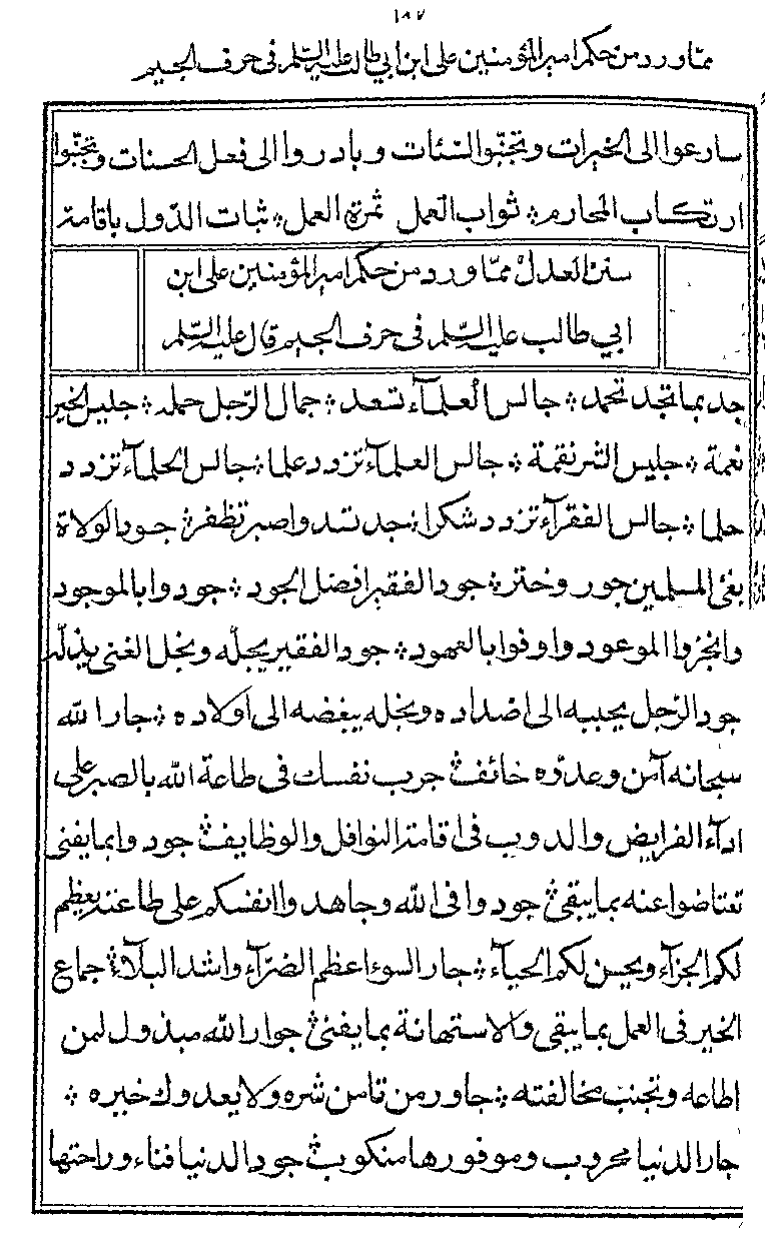 ١٨٧
ممّا ورد من حكم امير المؤمنين على ابن ابي طالب عليه السّلم في حرف الجيم
سارعوا الى الخيرات وتجنّبوا السّئات وبادروا الى فعل الحسنات وتجنّبوا
ارتكاب المحارم؞ ثواب العمل ثمرة العمل؞ ثبات الدّول باقامة
سنن العدل ممّا ورد من حكم امير المؤمنين على ابن
ابي طالب عليه السّلم في حرف الجيم قال عليه السّلم
جد بما تجد تحمد؞ جالس العلمآء تسعد؞ جمال الرّجل حلمه؞ جليس الخير
نعمة؞ جليس الشر نقمة؞ جالس العلمآء تزدد علما؞ جالس الحلمآء تزدد
حلما؞ جالس الفقرآء تزدد شكرا؞ جد تسد واصبر تظفر؞ جود الولاة
بفئ المسلمين جور وختر؞ جود الفقير افضل الجود؞ جودوا بالموجود
وانجزوا الموعود واوفوا بالعهود؞ جود الفقير يجلّه وبخل الغنى يذلّه
جود الرّجل يحببه الى اضداده وبخله يبغضه الى اولاده؞ جار الله
سبحانه آمن وعدوّه خائف؞ جرب نفسك في طاعة الله بالصبر على
ادآء الفرايض والدوب في اقامة النوافل والوظايف؞ جودوا بما يفنى
تعتاضوا عنه بما يبقى؞ جودوا في الله وجاهدوا انفسكم على طاعته يعظم
لكم الجزآء ويحسن لكم الحبآء؞ جار السوء اعظم الضرّآء واشد البلآء؞ جماع
الخير في العمل بما يبقى والاستهانة بما يفنى؞ جوار الله مبذول لمن
اطاعه وتجنب مخالفته؞ جاور من تامن شره ولا يعدوك خيره؞
جار الدنيا محروب وموفورها منكوب؞ جود الدنيا فناء وراحتها